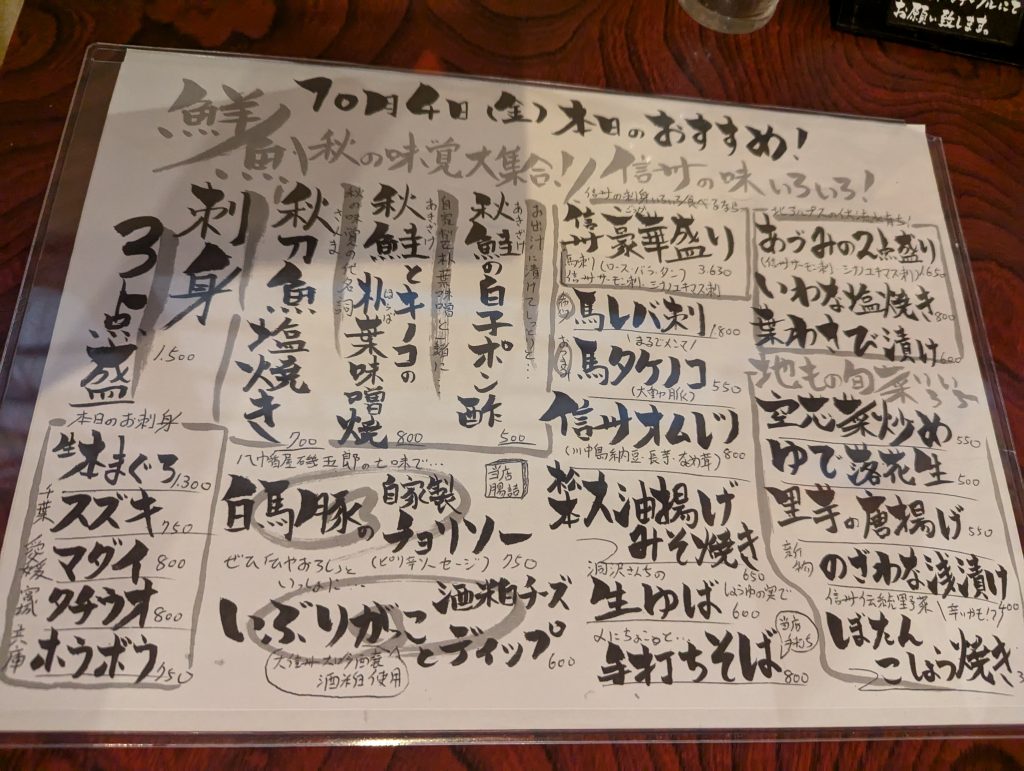 お願い致します。
10月4日(金)本日のおすすめ!
鮮魚
秋の味覚大集合!!
信州の味いろいろ!
刺身
3点盛
1.500
本日のお刺身
生本まぐろ 1.300
千葉 スズキ 750
愛媛 マダイ 800
宮城 タチウオ 800
兵庫 ホウボウ 750
秋の味覚の代名詞
さんま
秋刀魚塩焼き
700
自家製朴葉味噌と一緒に…
あきざけ
秋鮭とキノコの
ほおば
朴葉味噌焼
800
お出汁に漬けてしっとり…
あきざけ
秋鮭の白子ポン酢
500
八幡屋礒五郎の七味で…
当店腸詰
白馬豚の自家製チョリソー
(ピリ辛ソーセージ) 750
いぶりがっこと酒粕チーズディップ
600
酒粕使用
信州の刺身いろいろ食べるなら
信州豪華盛り
馬刺(ロース・バラ・タン) 3.630
信州サーモン刺・シナノユキマス刺
馬レバ刺 1800
馬タケノコ 550
(大動脈)
信州オムレツ 800
(川中島納豆・長芋・なめ茸)
松本大油揚げみそ焼き
650
生ゆば
しょうゆの実で
600
〆にちょこっと…
当店手打ち
手打ちそば 800
あづみの2点盛り
(信州サーモン刺・シナノユキマス刺) 1650
いわな塩焼き 800
葉わさび漬け 600
地もの旬菜いろいろ
空芯菜炒め 550
ゆで落花生 500
里芋の唐揚げ 550
のざわな浅漬け 400
信州伝統野菜
辛いかも!?
ぼたんこしょう焼き